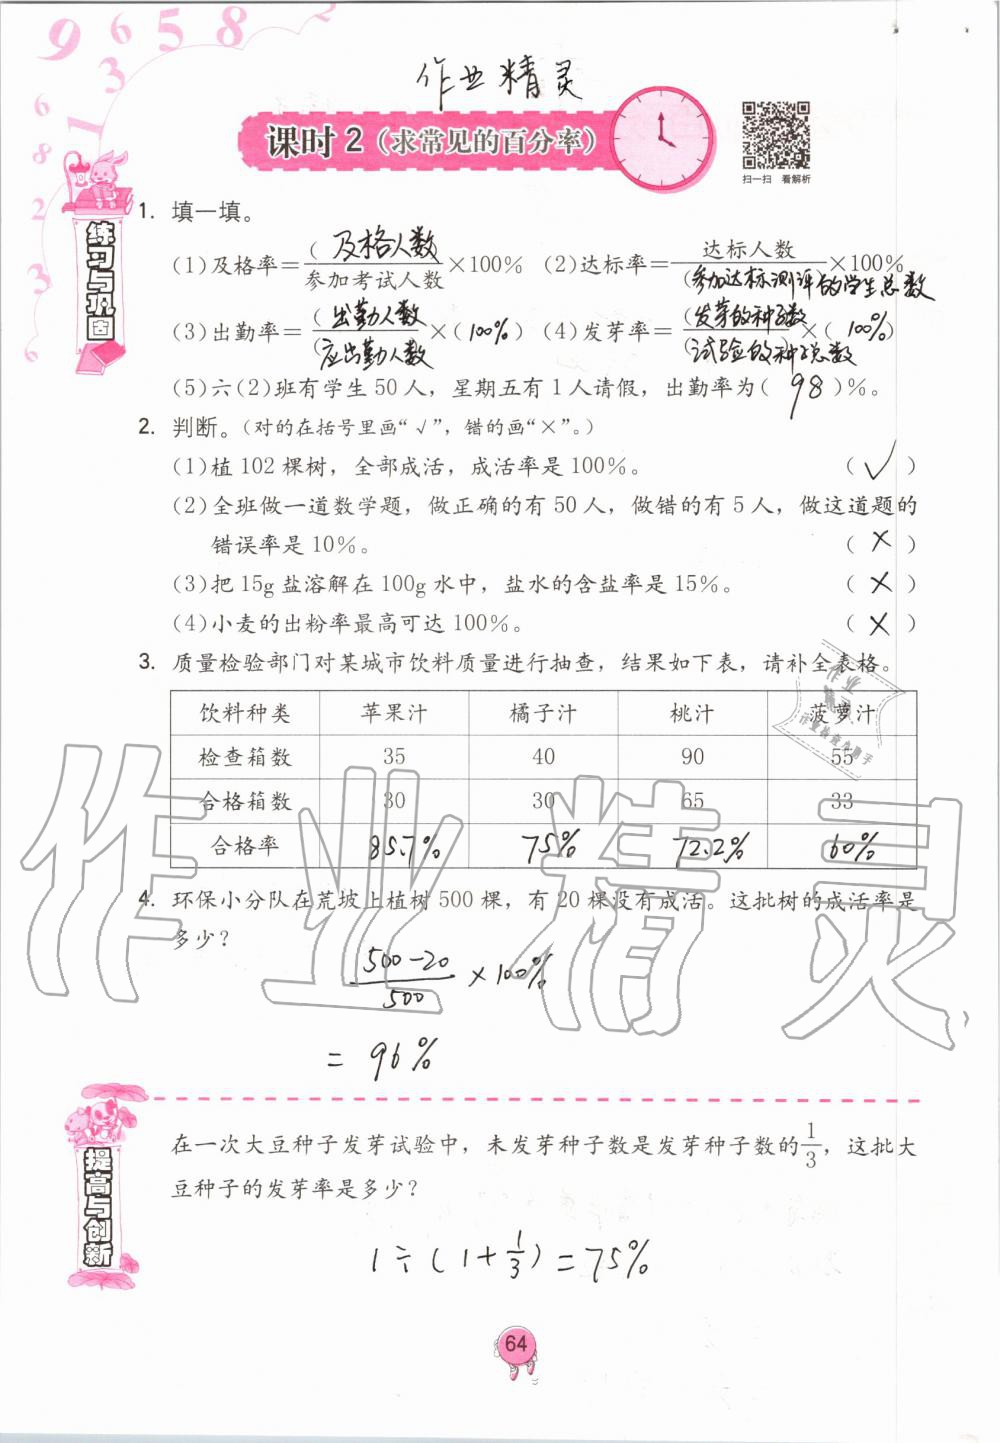 9 6 5 8 2
作业精灵
课时2（求常见的百分率）
扫一扫 看解析
练习与巩固
1. 填一填。
(1)及格率=(及格人数/参加考试人数×100% (2)达标率=达标人数/(参加达标测评的学生总数×100%
(3)出勤率=(出勤人数/(应出勤人数×(100%) (4)发芽率=(发芽的种子数/(试验的种子总数×(100%)
(5)六(2)班有学生50人，星期五有1人请假，出勤率为(98)%。
2. 判断。(对的在括号里画“√”，错的画“×”。)
(1)植102棵树，全部成活，成活率是100%。 (√)
(2)全班做一道数学题，做正确的有50人，做错的有5人，做这道题的
错误率是10%。 (×)
(3)把15g盐溶解在100g水中，盐水的含盐率是15%。 (×)
(4)小麦的出粉率最高可达100%。 (×)
3. 质量检验部门对某城市饮料质量进行抽查，结果如下表，请补全表格。
饮料种类 苹果汁 橘子汁 桃汁 菠萝汁
检查箱数 35 40 90 55
合格箱数 30 30 65 33
合格率 85.7% 75% 72.2% 60%
4. 环保小分队在荒坡上植树500棵，有20棵没有成活。这批树的成活率是
多少？
500-20/500 ×100%
=96%
作业精灵
提高与创新
在一次大豆种子发芽试验中，未发芽种子数是发芽种子数的1/3，这批大
豆种子的发芽率是多少？
1÷(1+1/3)=75%
64